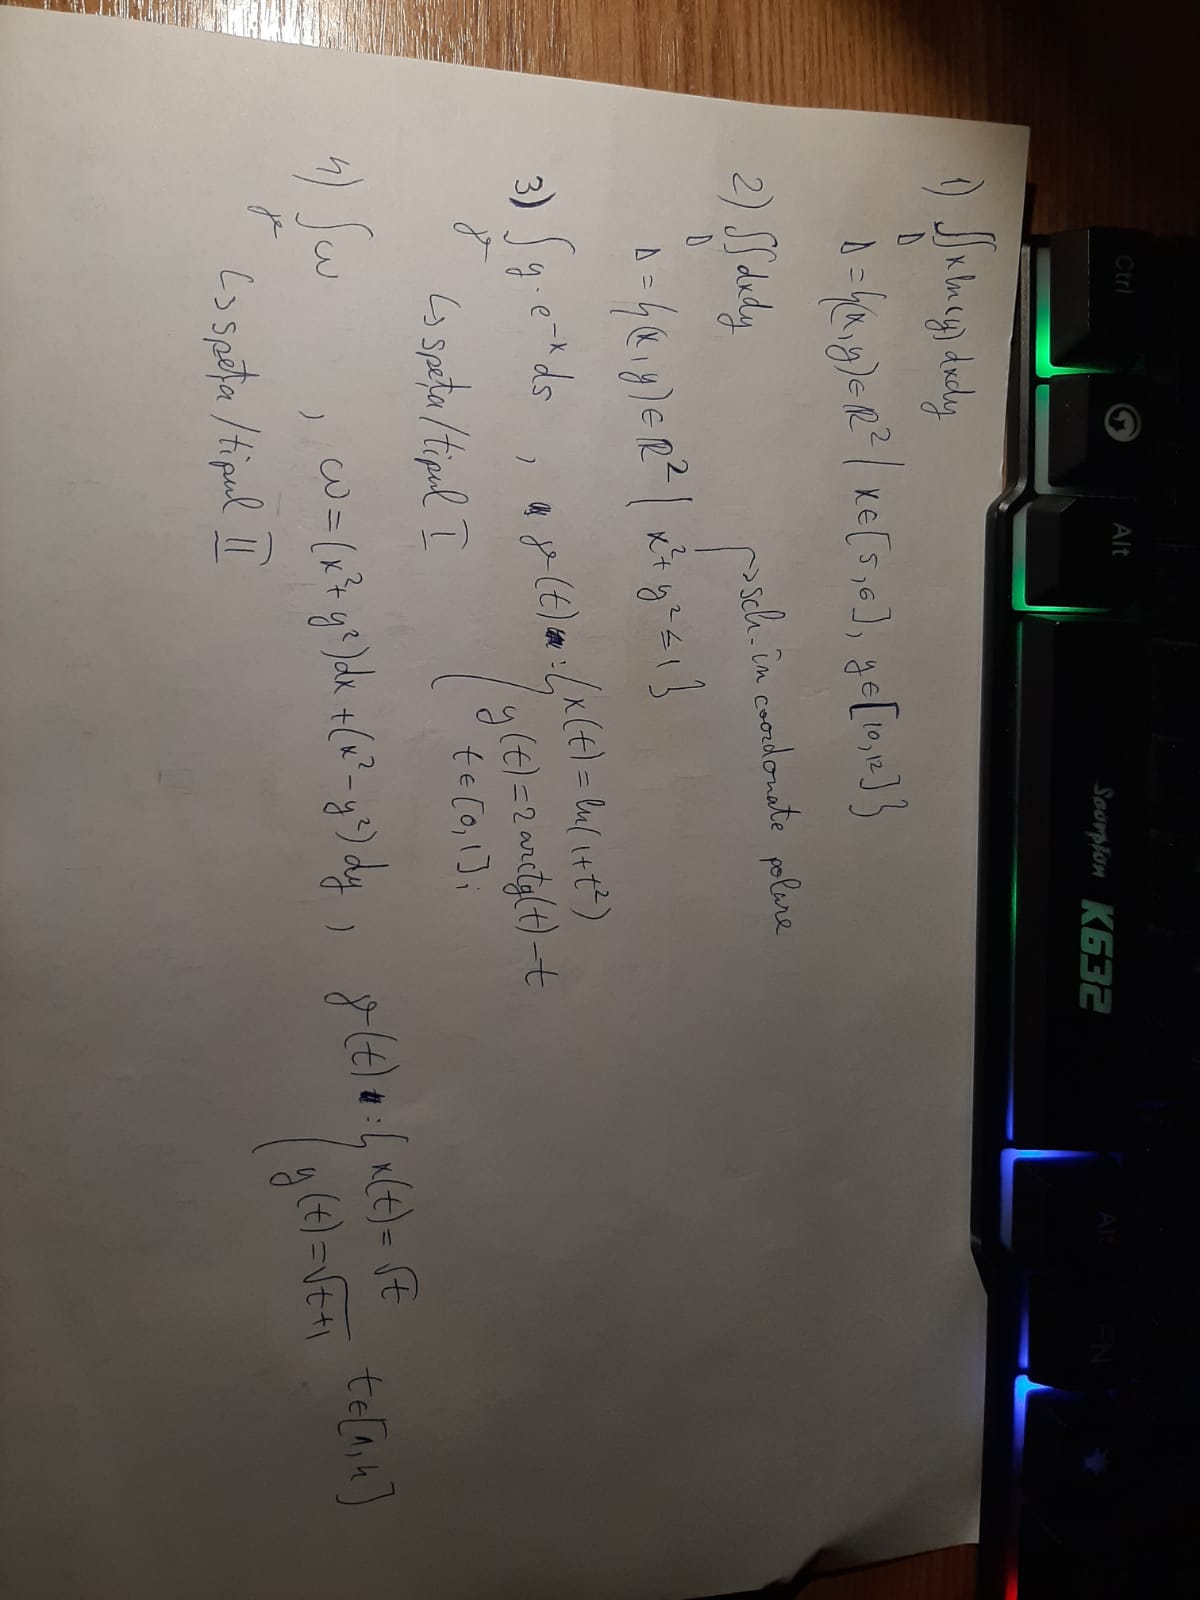 Ctrl Alt Scorpion K632 Alt FN
1) ∬ x ln(y) dxdy
D
D = {(x,y) ∈ ℝ² | x ∈ [5,6], y ∈ [10,12]}
→ sch. în coordonate polare
2) ∬ dxdy
D
D = {(x,y) ∈ ℝ² | x² + y² ≤ 1}
3) ∫ y · e^{-x} ds , γ(t) : { x(t) = ln(1+t²)
γ
y(t) = 2 arctg(t) - t
t ∈ [0,1];
↳ speța/tipul I
4) ∫ ω , ω = (x² + y²)dx + (x² - y²)dy , γ(t) : { x(t) = √t t ∈ [1,4]
γ
y(t) = √t+1
↳ speța/tipul II